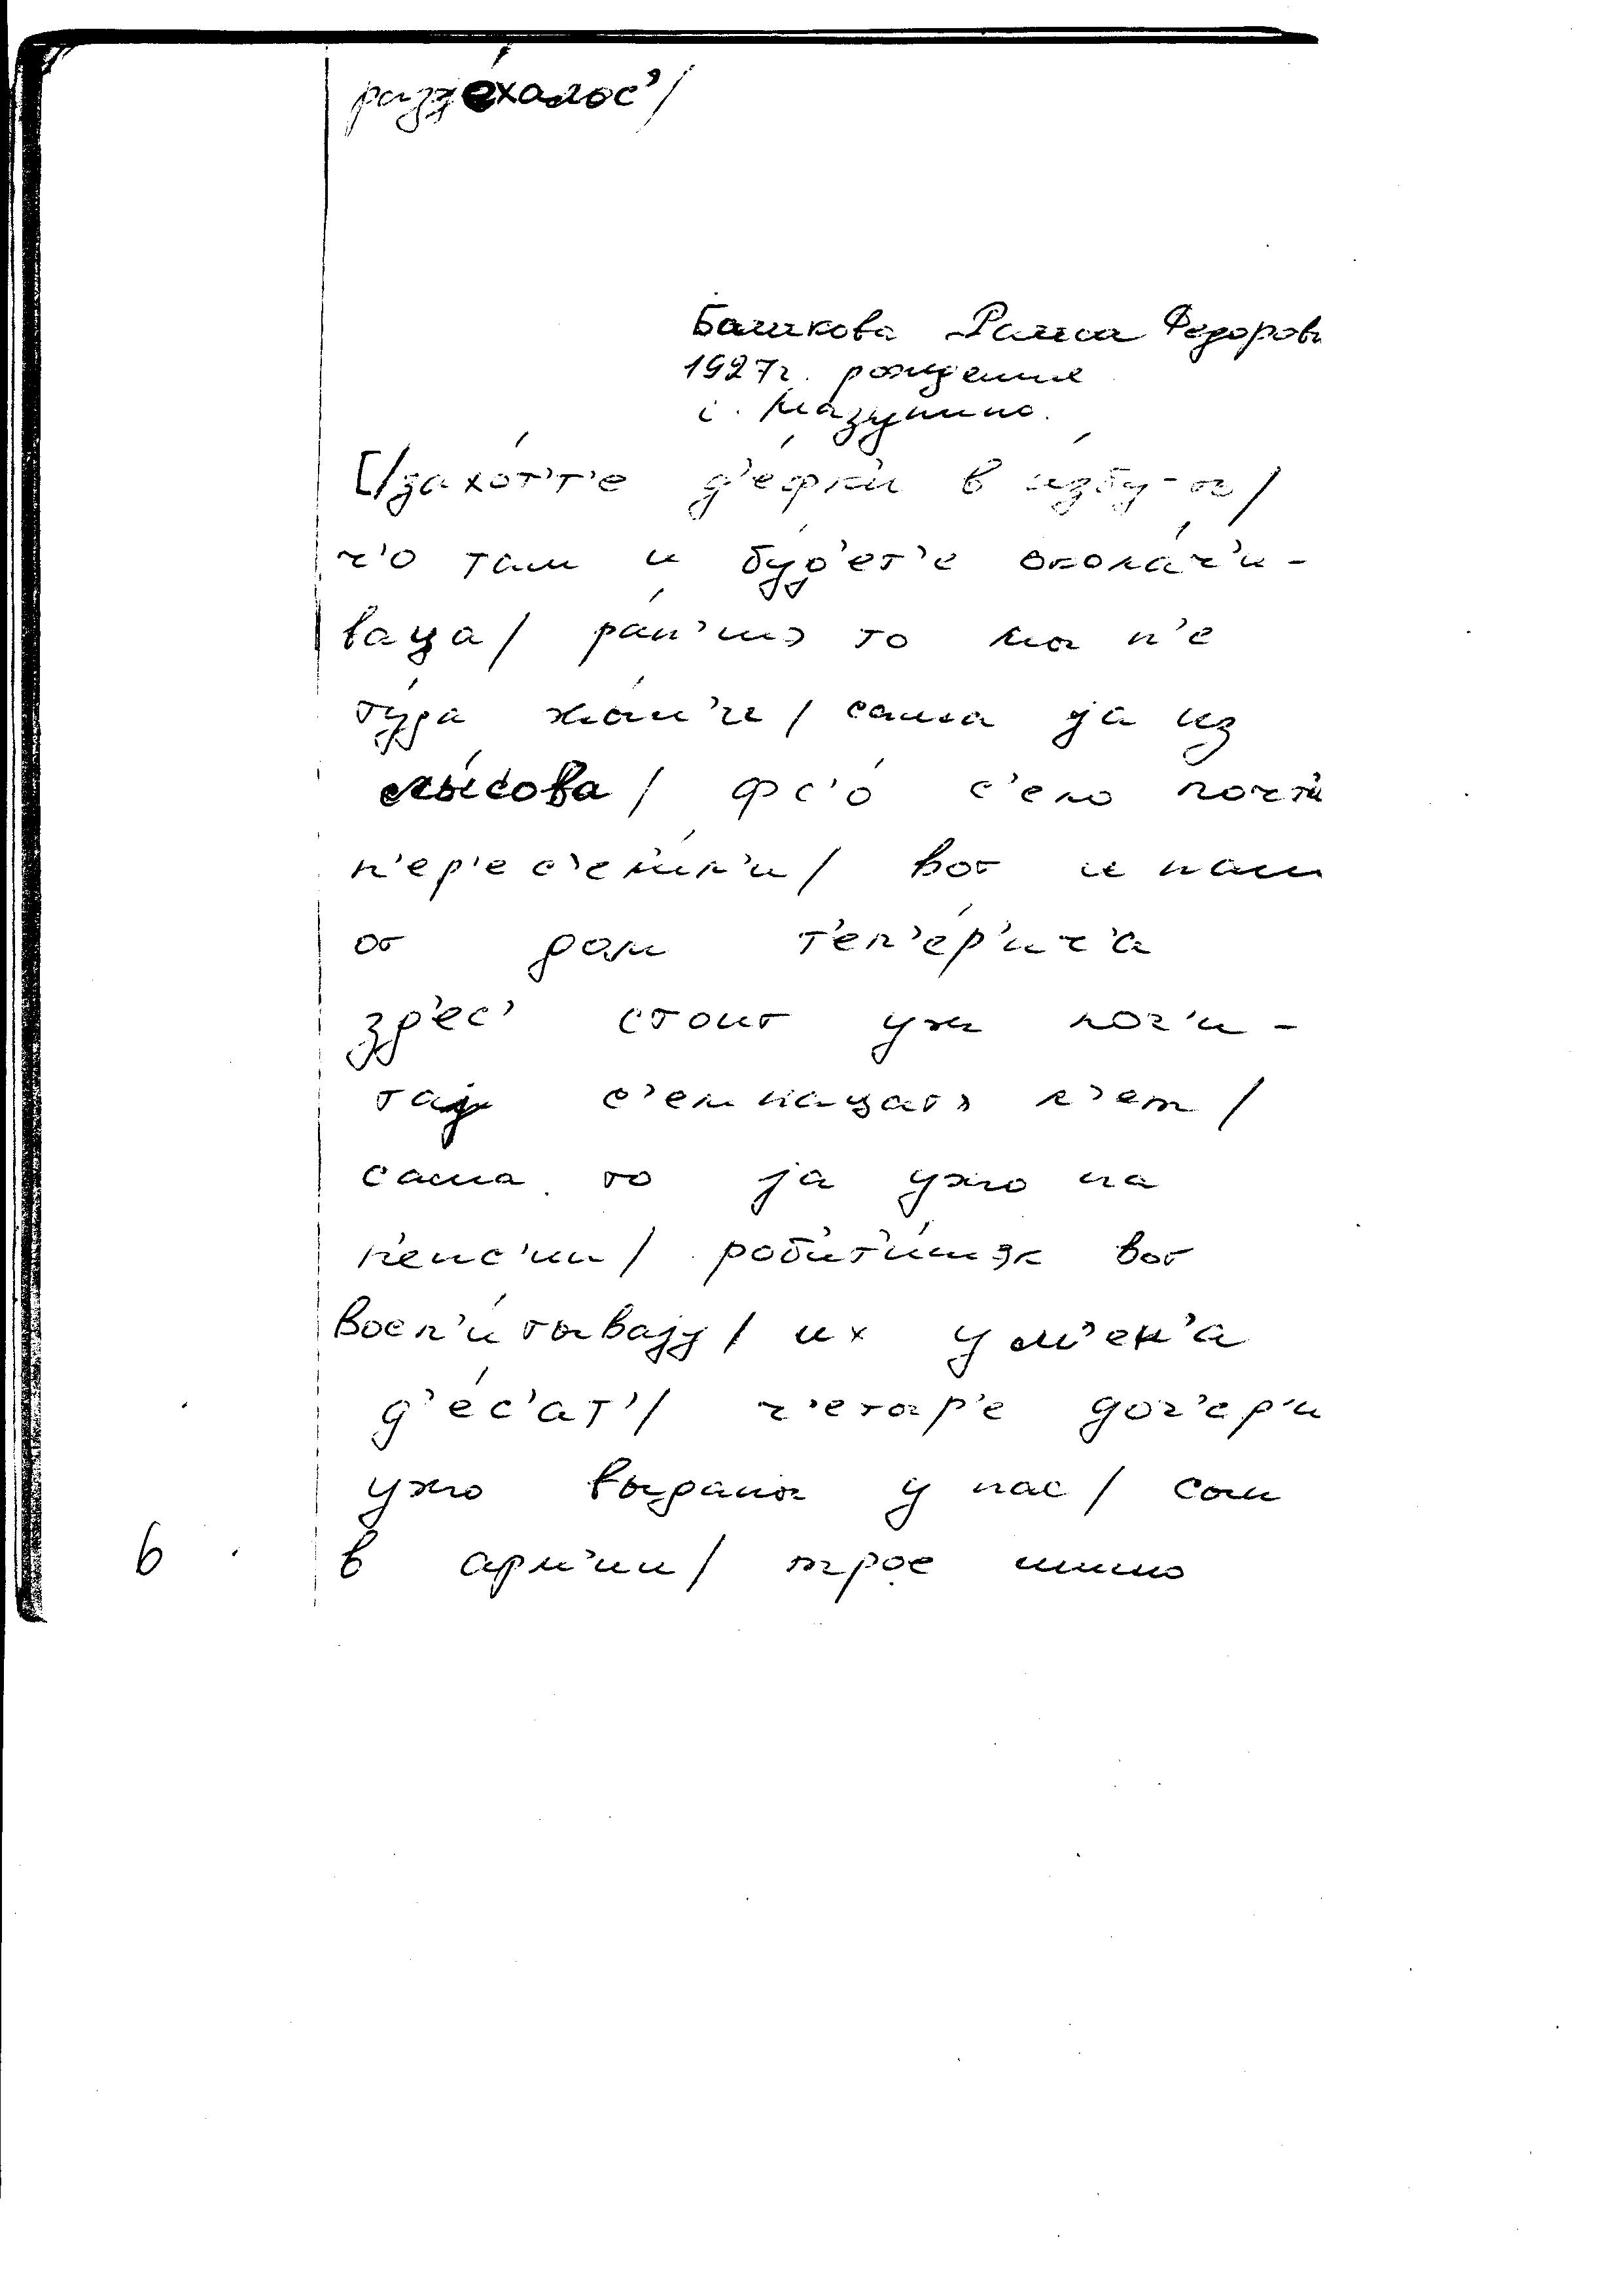 разјéхалос’/
Башкова Раиса Федоровн
1927г. рождения
с. Мазунино.
[/захо́т’т’е д’е́фки в и́збу-ы/
ч’о там и бу́д’ет’е окола́ч’и-
ваца/ ра́н’шэ то мы н’е
ту́да жы́л’и/ сама ја из
лы́сова/ фс’о́ с’ело почти
п’ер’ес’ел’и́л’и/ вот и наш
от дом т’еп’е́р’ич’а
зд’ес’ стоит уж поч’и-
тај с’емнацатъ л’ет/
сама то ја ужо на
п’енс’ии/ роб’ит’и́шэк вот
восп’и́тывају/ их у м’ен’а
д’е́с’ат’/ ч’етыр’е доч’ер’и
ужо выданы у нас/ сын
в арм’ии/ трое ишшо
6